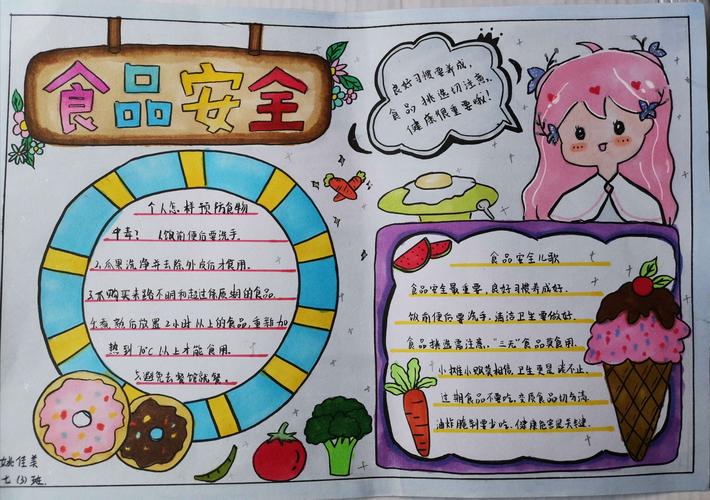 食品安全
良好习惯要养成,
食品挑选切注意.
健康很重要哦!
个人怎样预防食物
中毒? 1.饭前便后要洗手.
2.瓜果洗净并去除外皮后才食用.
3.不购买来路不明和超过保质期的食品.
4.煮熟后放置2小时以上的食品,重新加
热到70℃以上才能食用.
5.避免去餐馆就餐.
食品安全儿歌
食品安全最重要,良好习惯养成好.
饭前便后要洗手,清洁卫生要做好.
食品挑选需注意,“三无”食品莫食用.
小摊小贩莫相信,卫生更是谈不上.
过期食品不要吃,变质食品切勿沾.
油炸腌制要少吃,健康危害是关键.
姚佳美
七(3)班